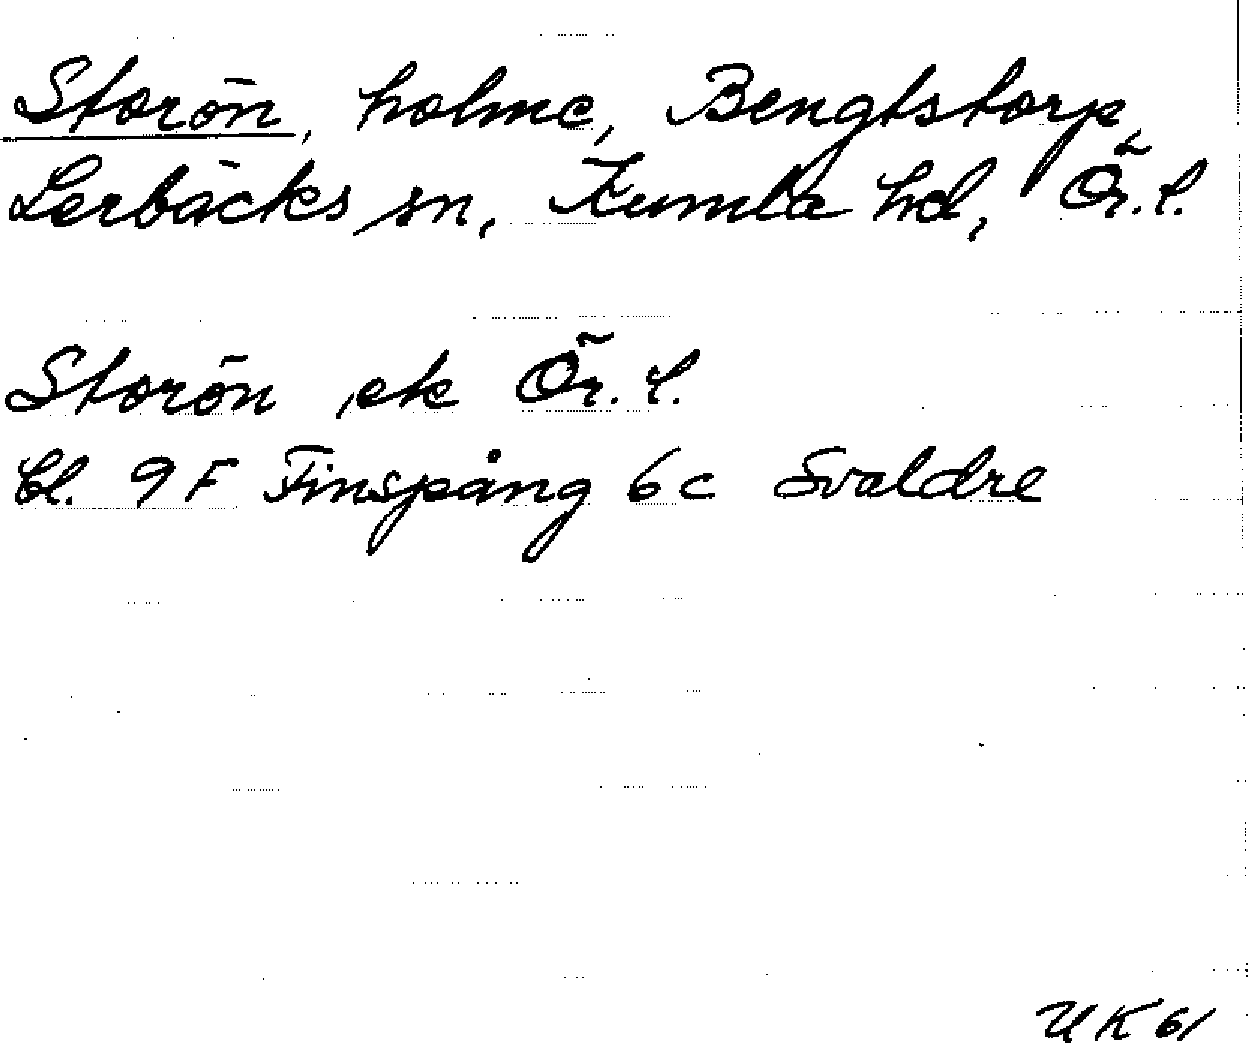 Storön, holme, Bengtstorp,
Lerbäcks sn, Kumla hd, Ör. l.
Storön, ek Ör. l.
bl. 9 F Finspång 6 c Svaldre
UK 61